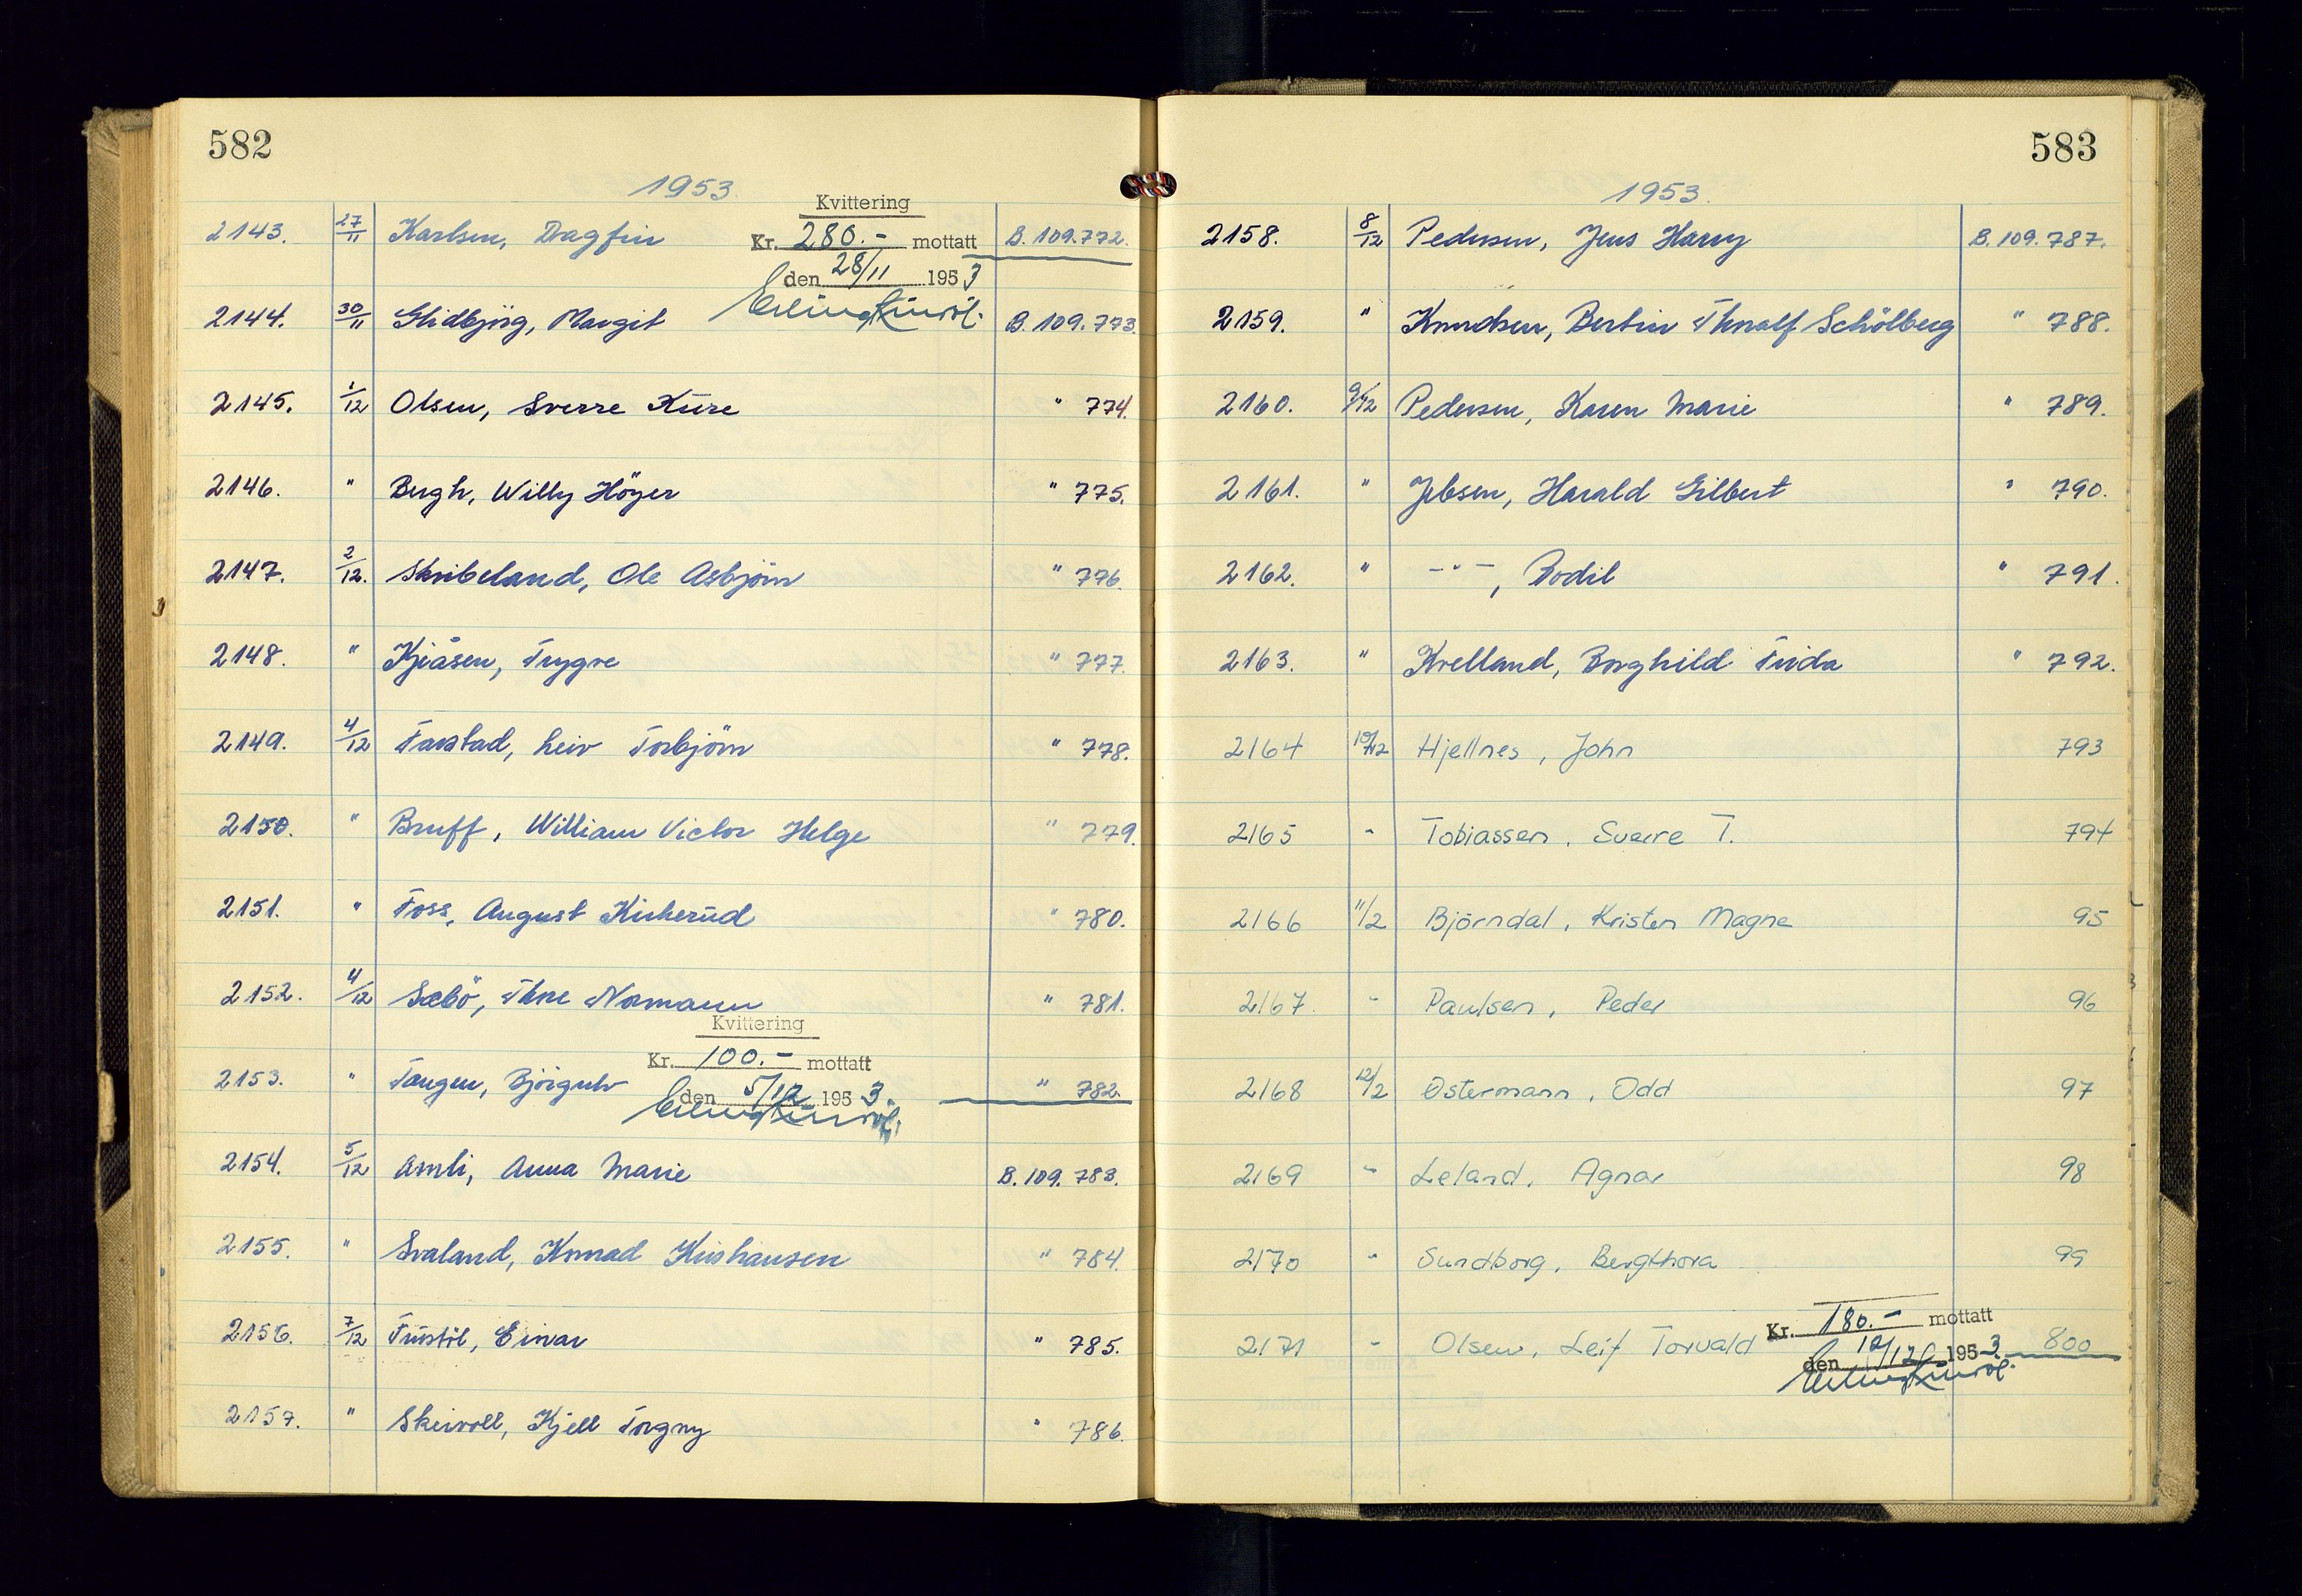 582
1953.
Kvittering
2143. 27/11 Karlsen, Dagfin Kr. 280.- mottatt B. 109.772.
den 28/11 1953
2144. 30/11 Glidbjörg, Margit B. 109.773.
2145. 1/12 Olsen, Sverre Kure " 774.
2146. " Bergh, Willy Höyer " 775.
2147. 2/12. Skribeland, Ole Asbjörn " 776.
2148. " Kjiåsen, Trygve " 777.
2149. 4/12 Farstad, Leiv Torbjörn " 778.
2150. " Bruff, William Victor Helge " 779.
2151. " Foss, August Kirkerud " 780.
2152. 4/12 Sæbö, Thore Normann " 781.
Kvittering
Kr. 100.- mottatt
2153. " Tangen, Björgulv " 782.
den 5/12 1953.
2154. 5/12 Amli, Anna Marie B. 109. 783.
2155. " Svaland, Konrad Kristiansen " 784.
2156. 7/12 Trustöl, Einar " 785.
2157. " Skeivoll, Kjell Torgny " 786.
583
1953.
2158. 8/12 Pedersen, Jens Harry B. 109. 787.
2159. " Knudsen, Bertin Thoralf Schölberg " 788.
2160. 9/12 Pedersen, Karen Marie " 789.
2161. " Jebsen, Harald Gilbert " 790.
2162. " -"-, Bodil " 791.
2163. " Kvelland, Borghild Frida " 792.
2164 10/12 Hjellnes, John 793
2165 - Tobiassen, Sverre T. 794
2166 11/2 Björndal, Kristen Magne 95
2167 - Paulsen, Peder 96
2168 12/2 Østermann, Odd 97
2169 - Leland, Agnar 98
2170 - Sundborg, Bergthora 99
Kr. 180.- mottatt
2171 - Olsen, Leif Torvald 800
den 12/12 1953